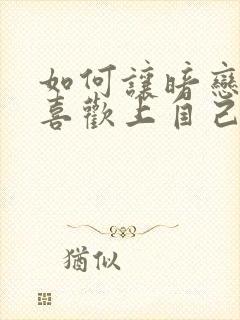 如何讓暗戀
喜歡上自己
猶似